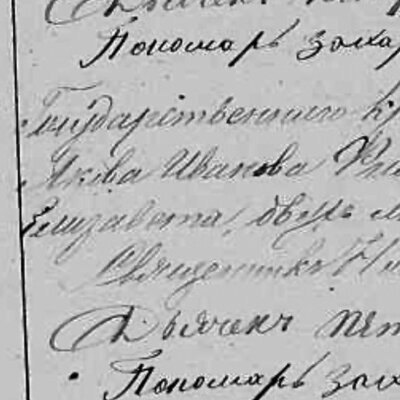 Дьячекъ
Пономарь Заха
Государственнаго к
Якова Иванова
Елизавета, двухъ
Священникъ
Дьячекъ Пет
Пономарь Заха